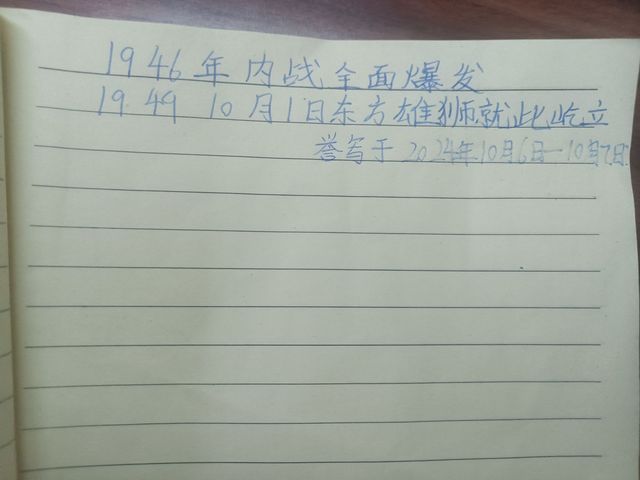 1946年内战全面爆发
1949 10月1日东方雄狮就此屹立
誉写于 2024年10月6日—10月7日